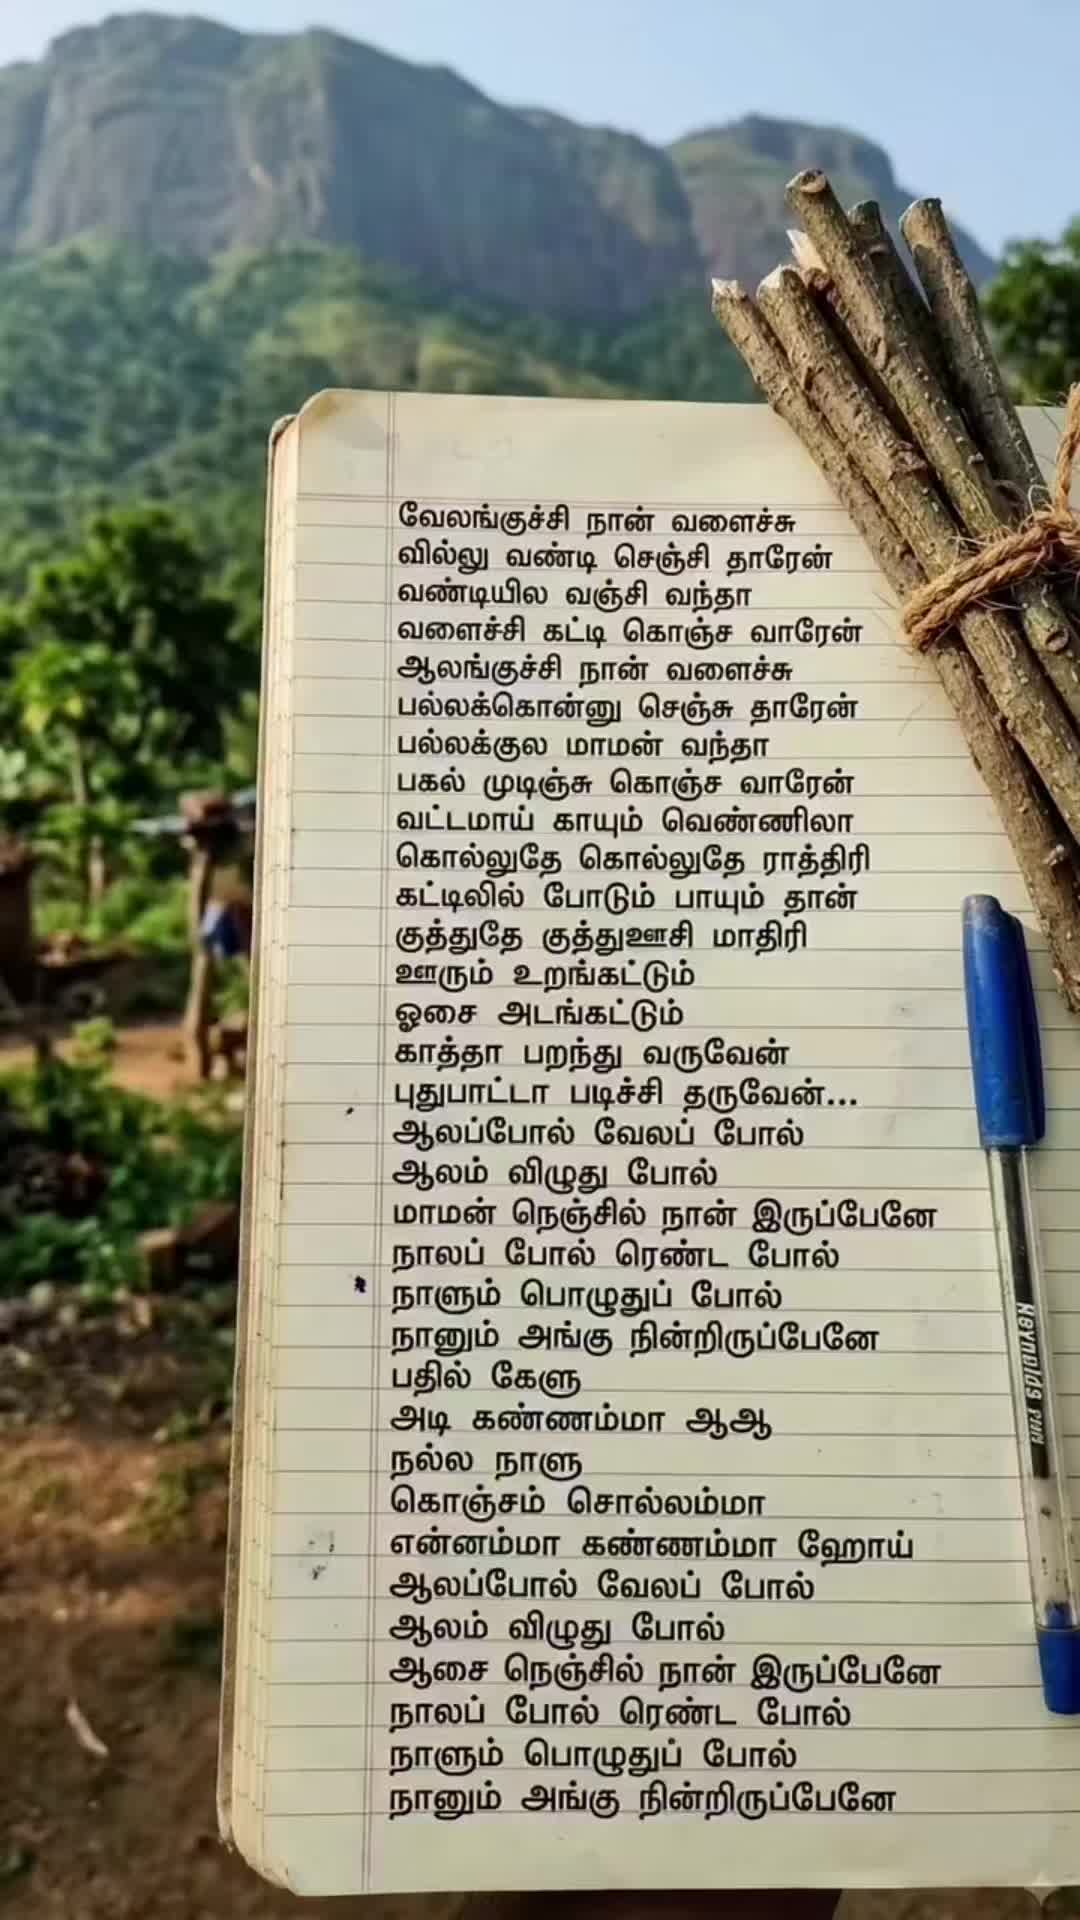 வேலங்குச்சி நான் வளைச்சு
வில்லு வண்டி செஞ்சி தாரேன்
வண்டியில வஞ்சி வந்தா
வளைச்சி கட்டி கொஞ்ச வாரேன்
ஆலங்குச்சி நான் வளைச்சு
பல்லக்கொன்னு செஞ்சு தாரேன்
பல்லக்குல மாமன் வந்தா
பகல் முடிஞ்சு கொஞ்ச வாரேன்
வட்டமாய் காயும் வெண்ணிலா
கொல்லுதே கொல்லுதே ராத்திரி
கட்டிலில் போடும் பாயும் தான்
குத்துதே குத்துஊசி மாதிரி
ஊரும் உறங்கட்டும்
ஓசை அடங்கட்டும்
காத்தா பறந்து வருவேன்
புதுபாட்டா படிச்சி தருவேன்...
ஆலப்போல் வேலப் போல்
ஆலம் விழுது போல்
மாமன் நெஞ்சில் நான் இருப்பேனே
நாலப் போல் ரெண்ட போல்
நாளும் பொழுதுப் போல்
நானும் அங்கு நின்றிருப்பேனே
பதில் கேளு
அடி கண்ணம்மா ஆஆ
நல்ல நாளு
கொஞ்சம் சொல்லம்மா
என்னம்மா கண்ணம்மா ஹோய்
ஆலப்போல் வேலப் போல்
ஆலம் விழுது போல்
ஆசை நெஞ்சில் நான் இருப்பேனே
நாலப் போல் ரெண்ட போல்
நாளும் பொழுதுப் போல்
நானும் அங்கு நின்றிருப்பேனே